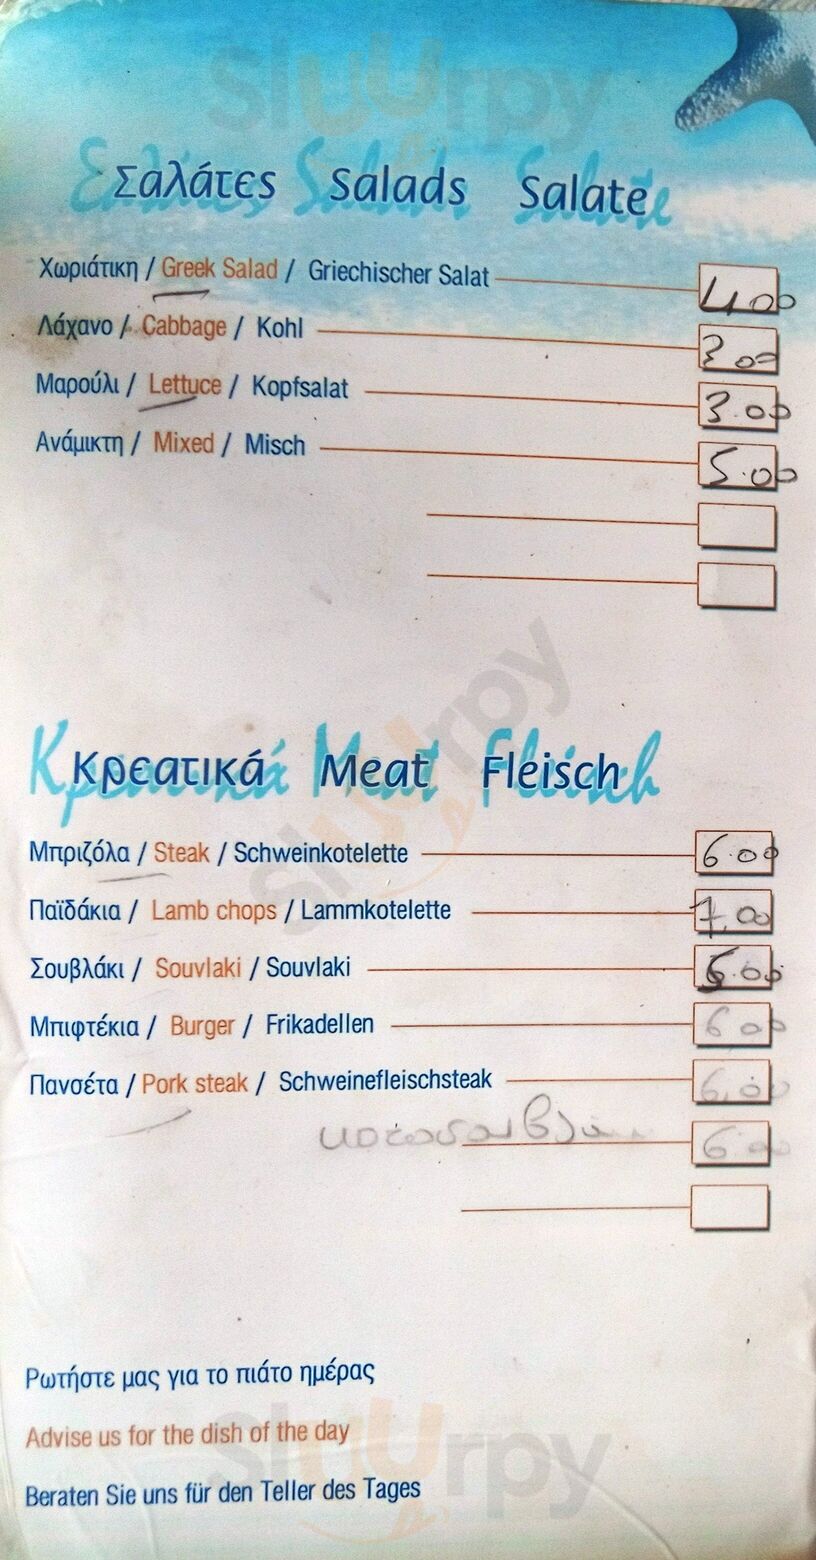 Σαλάτες Salads Salate
Χωριάτικη / Greek Salad / Griechischer Salat 4.00
Λάχανο / Cabbage / Kohl 3.00
Μαρούλι / Lettuce / Kopfsalat 3.00
Ανάμικτη / Mixed / Misch 5.00
Κρεατικά Meat Fleisch
Μπριζόλα / Steak / Schweinkotelette 6.00
Παϊδάκια / Lamb chops / Lammkotelette 7,00
Σουβλάκι / Souvlaki / Souvlaki 6.00
Μπιφτέκια / Burger / Frikadellen 6 00
Πανσέτα / Pork steak / Schweinefleischsteak 6,00
κοτοσουβλι 6.00
Ρωτήστε μας για το πιάτο ημέρας
Advise us for the dish of the day
Beraten Sie uns für den Teller des Tages
sluurpy
sluurpy
sluurpy